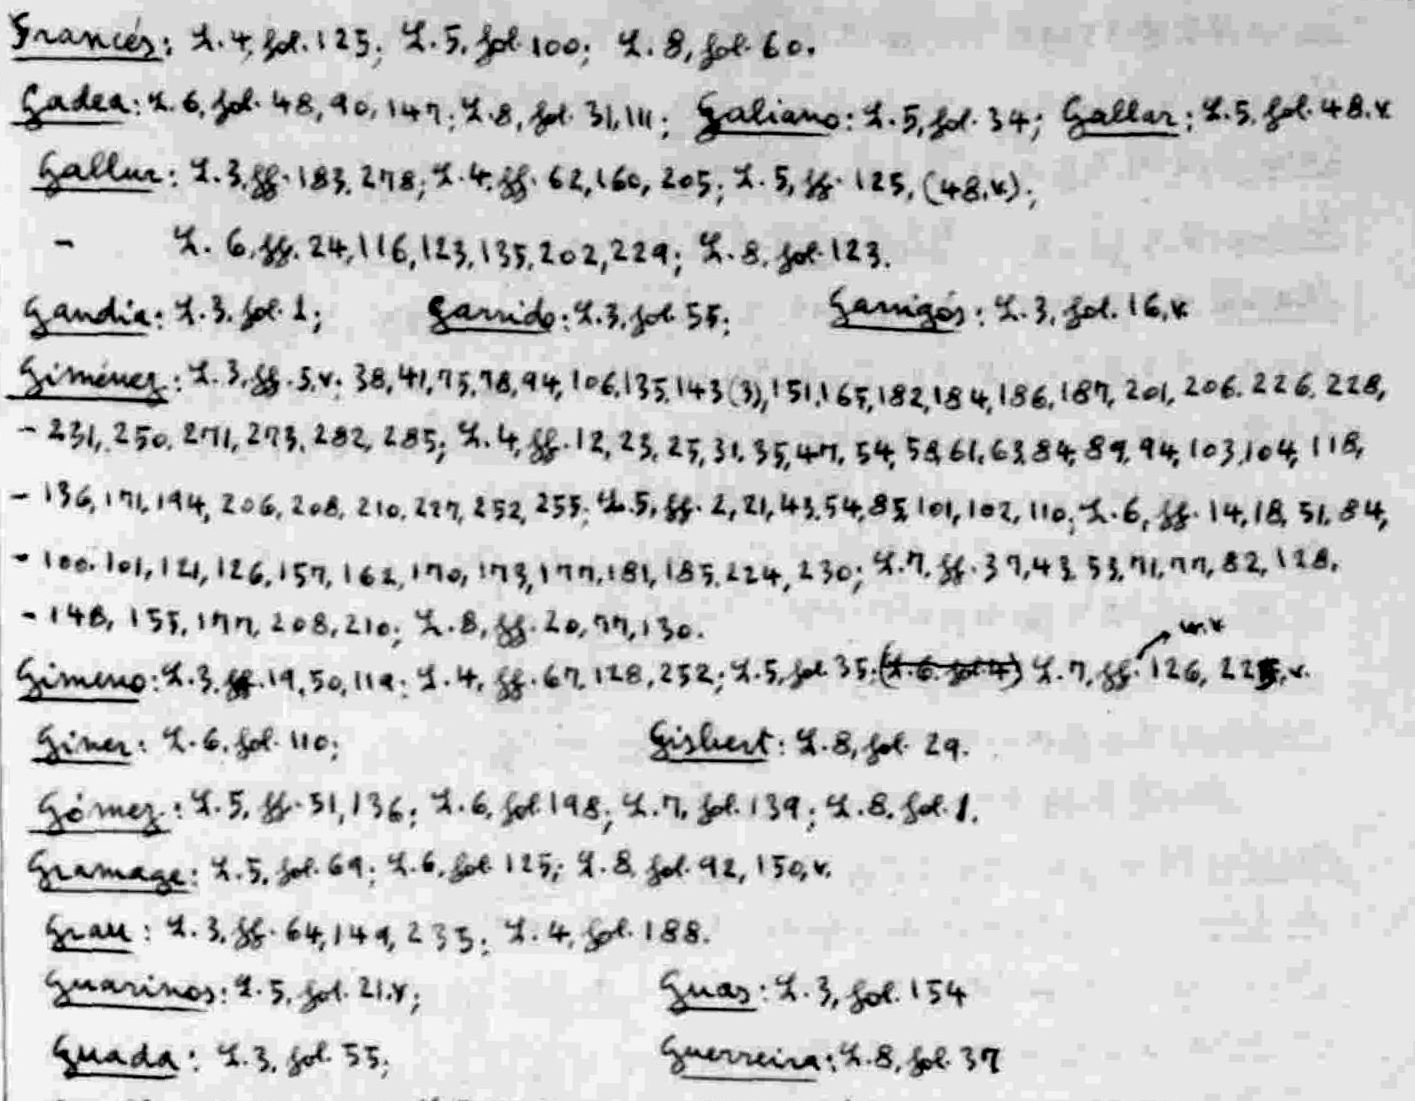 Francés: L.4, fol. 125; L.5, fol. 100; L.8, fol. 60.
Gadea: L.6, fol. 48, 90, 147; L.8, fol. 31, 111; Galiano: L.5, fol. 34; Gallar: L.5, fol. 48.v
Gallur: L.3, ff. 183, 278; L.4, ff. 62, 160, 205; L.5, ff. 125, (48.v);
- L.6, ff. 24, 116, 123, 135, 202, 229; L.8, fol. 123.
Gandia: L.3, fol. 1; Garrido: L.3, fol. 55; Garrigós: L.3, fol. 16.v
Giménez: L.3, ff. 5.v. 38, 41, 75, 78, 94, 106, 135, 143 (3), 151, 165, 182, 184, 186, 187, 201, 206, 226, 228,
- 231, 250, 271, 273, 282, 285; L.4, ff. 12, 23, 25, 31, 35, 47, 54, 58, 61, 63, 84, 89, 94, 103, 104, 118,
- 136, 171, 194, 206, 208, 210, 227, 252, 255; L.5, ff. 2, 21, 43, 54, 85, 101, 102, 110; L.6, ff. 14, 18, 51, 84,
- 100, 101, 121, 126, 157, 162, 170, 173, 177, 181, 185, 224, 230; L.7, ff. 37, 43, 53, 71, 77, 82, 128,
- 148, 155, 177, 208, 210; L.8, ff. 20, 77, 130.
Gimeno: L.3, ff. 19, 50, 119; L.4, ff. 67, 128, 252; L.5, fol. 35; (L.6. fol. 4) L.7, ff. 126, 225, v.
Giner: L.6, fol. 110; Gisbert: L.8, fol. 29.
Gómez: L.5, ff. 51, 136; L.6, fol. 198; L.7, fol. 139; L.8, fol. 1.
Gramage: L.5, fol. 69; L.6, fol. 125; L.8, fol. 92, 150, v.
Grau: L.3, ff. 64, 149, 235; L.4, fol. 188.
Guarinos: L.5, fol. 21.v; Guas: L.3, fol. 154
Guada: L.3, fol. 55; Guerreira: L.8, fol. 37